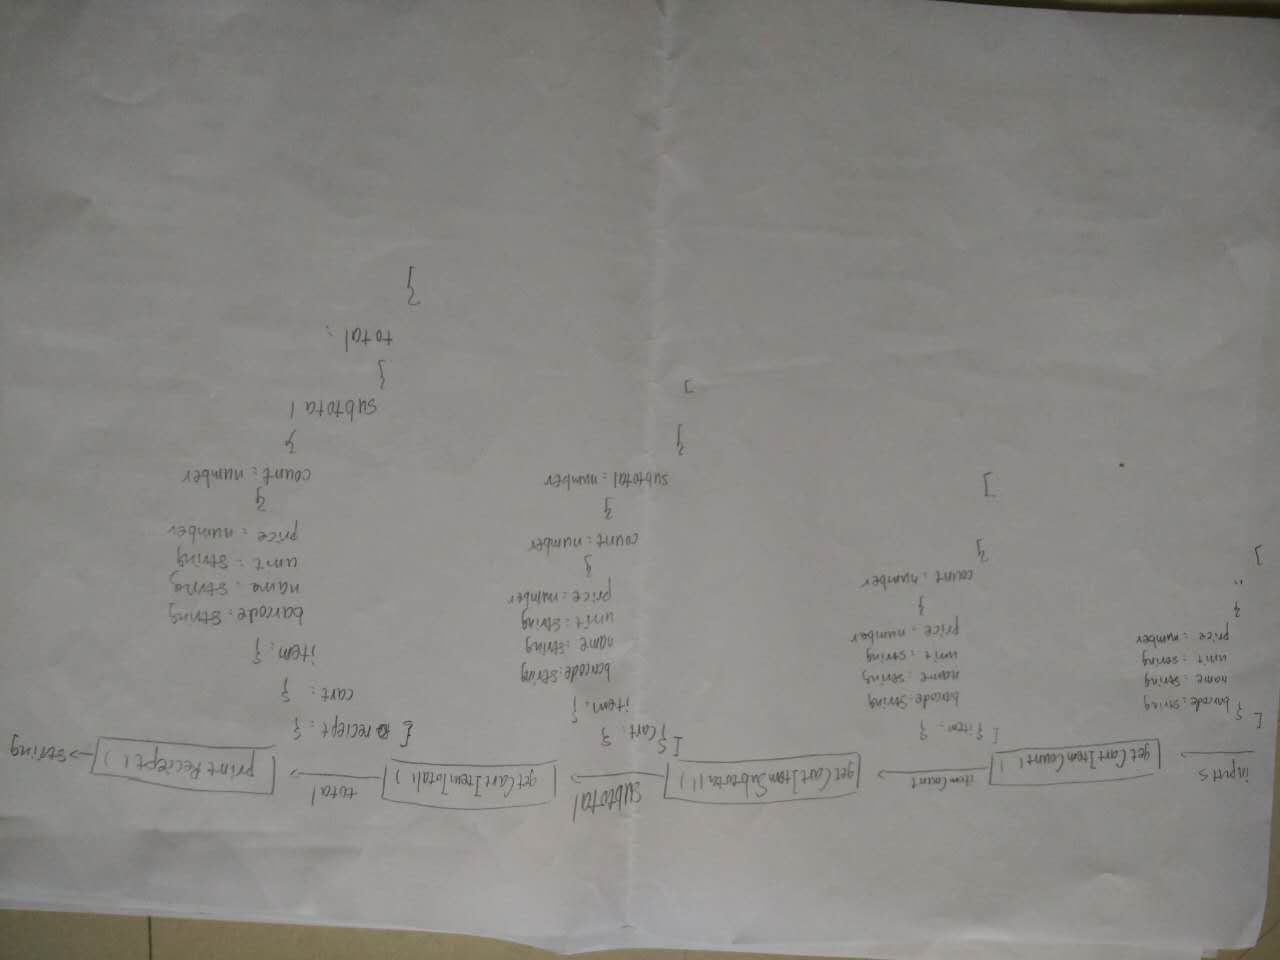 inputs
getCartItemCount( )
itemCount
getCartItemSubtotal( )
subtotal
getCartItemTotal( )
total
printReciept( )
string
[{ barcode: string
name : string
unit : string
price : number
}
"
]
[ { item : {
barcode string
name : string
unit : string
price : number
}
count : number
}
]
[ { cart : {
item : {
barcode: string
name : string
unit : string
price : number
}
count : number
}
subtotal : number
}
]
[ reciept : {
cart : {
item : {
barcode : string
name : string
unit : string
price : number
}
count : number
}
subtotal
}
total :
}